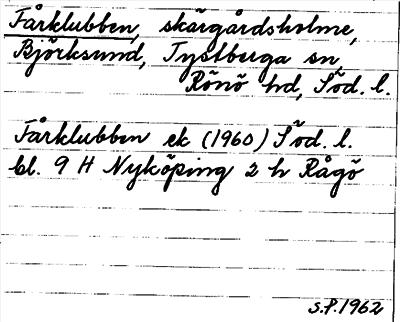 Fårklubben, skärgårdsholme,
Björksund, Tystberga sn,
Rönö hd, Söd. l.
Fårklubben ek (1960) Söd. l.
bl. 9 H Nyköping 2 h Rågö
s.P. 1962